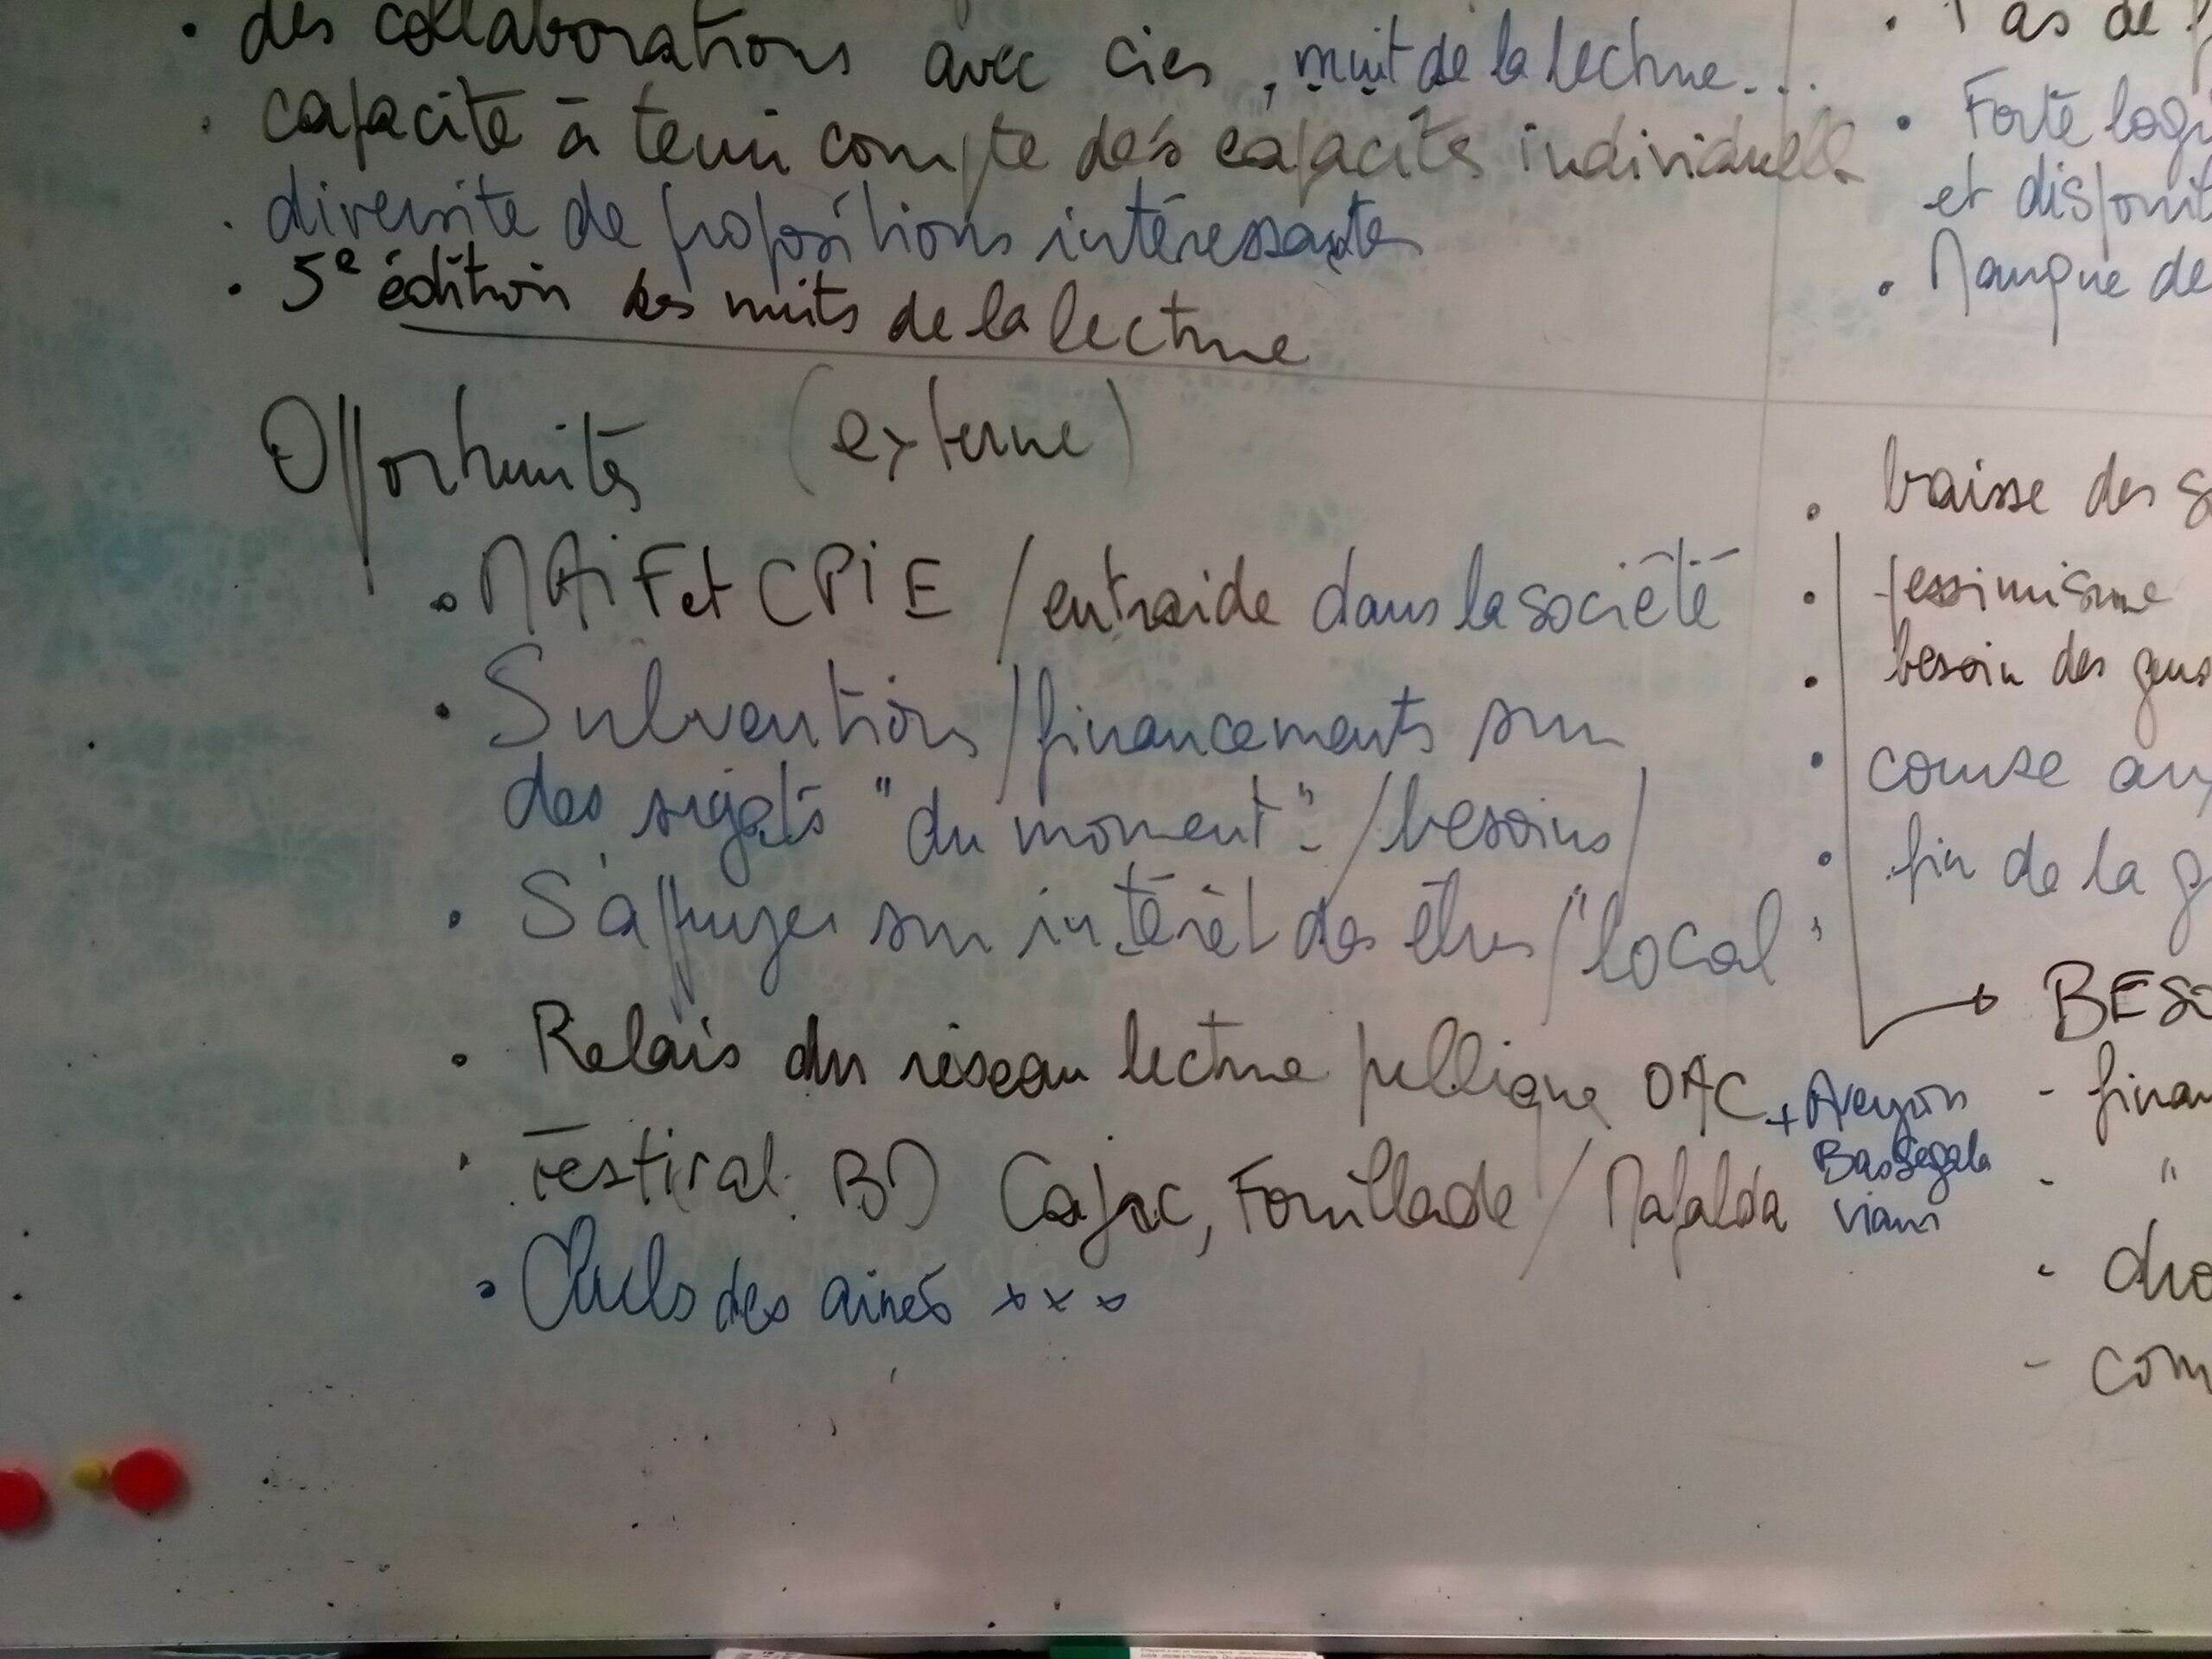 • des collaborations avec cies, nuit de la lecture...
• capacité à tenir compte des capacités individuelles
• diversité de propositions intéressantes
• 5e édition des nuits de la lecture
Opportunités (externe)
• MAiF et CPiE / entraide dans la société
• Subventions / financements sur
des sujets "du moment" / besoins /
• S'appuyer sur intérêt des êtres / "local"
• Relais du réseau lecture publique OAC + Aveyron
Bas Ségala
Viaur
• Festival BD Cajarc, Fouillade / Mafalda
• Clubs des ainés xxx
• Pas de
• Forte logi
et disponi
• Manque de
• baisse des s
• pessimisme
• besoin des gens
• course aux
• fin de la g
→ BESO
- finan
- "
- dro
- com